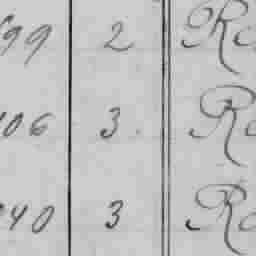 99 2 Ro
06 3 Ro
40 3 Ro